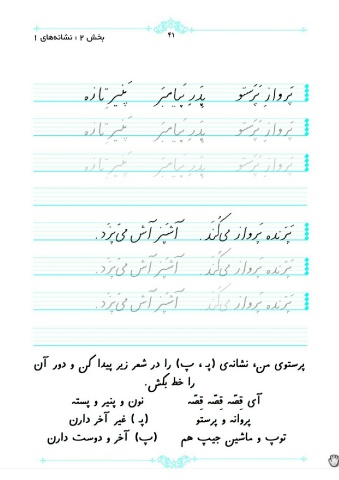 ۴۱
بخش ۲ : نشانه‌های ۱
پَروازِ پَرَستو پِدَرِ پَیامبَر پَنیرِ تازه
پَروازِ پَرَستو پِدَرِ پَیامبَر پَنیرِ تازه
پَروازِ پَرَستو پِدَرِ پَیامبَر پَنیرِ تازه
پَرَنده پَرواز می‌کُنَد. آشپَز آش می‌پَزَد.
پَرَنده پَرواز می‌کُنَد. آشپَز آش می‌پَزَد.
پَرَنده پَرواز می‌کُنَد. آشپَز آش می‌پَزَد.
پرستوی من، نشانه‌ی (پـ ، پ) را در شعر زیر پیدا کن و دور آن
را خط بکش.
آی قِصّه قِصّه قِصّه نون و پنیر و پسته
پروانه و پرستو (پـ) غیر آخر دارن
توپ و ماشین جیپ هم (پ) آخر و دوست دارن